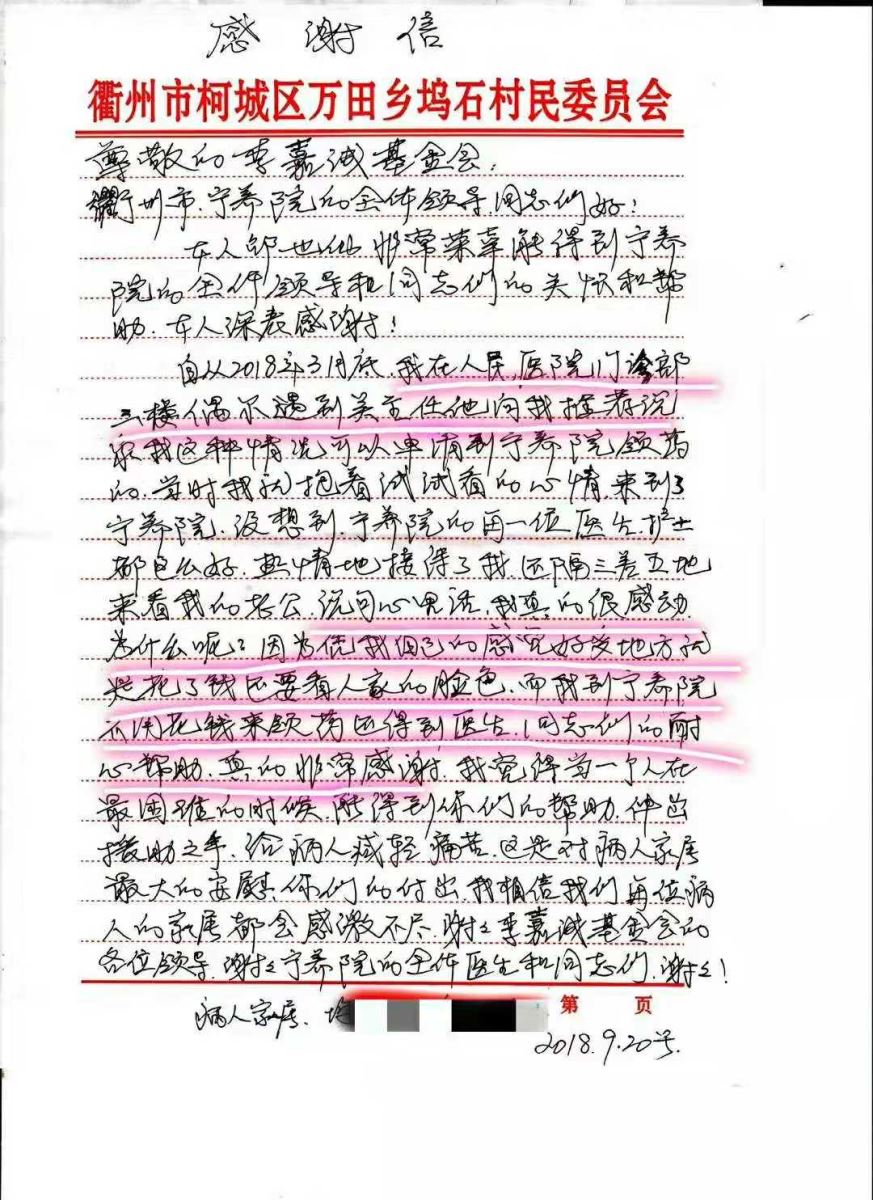 感谢信
衢州市柯城区万田乡坞石村民委员会
尊敬的李嘉诚基金会:
衢州市.宁养院的全体领导.同志们好!
本人邹也仙非常荣幸能得到宁养
院的全体领导和同志们的关怀和帮
助.本人深表感谢!
自从2018年3月底.我在人民.医院门诊部
三楼偶尔遇到关主任他向我推荐说
像我这种情况可以申请到宁养院领药
的.当时我就抱着试试看的心情来到了
宁养院.没想到.宁养院的每一位医生.护士
都这么好.热情地接待了我.还隔三差五地
来看我的老公.说句心里话.我真的很感动.
为什么呢?因为凭我自己的感觉好多地方就
是花了钱还要看人家的脸色.而我到宁养院
不用花钱来领药还得到医生.同志们的耐
心帮助.真的非常感谢.我觉得当一个人在
最困难的时候.能得到你们的帮助.伸出
援助之手.给病人减轻痛苦.这是对病人家属
最大的安慰.你们的付出.我相信我们每位病
人的家属都会感激不尽.谢谢李嘉诚基金会的
各位领导.谢谢宁养院的全体医生和同志们.谢谢!
第 页
病人家属.
2018.9.20号.